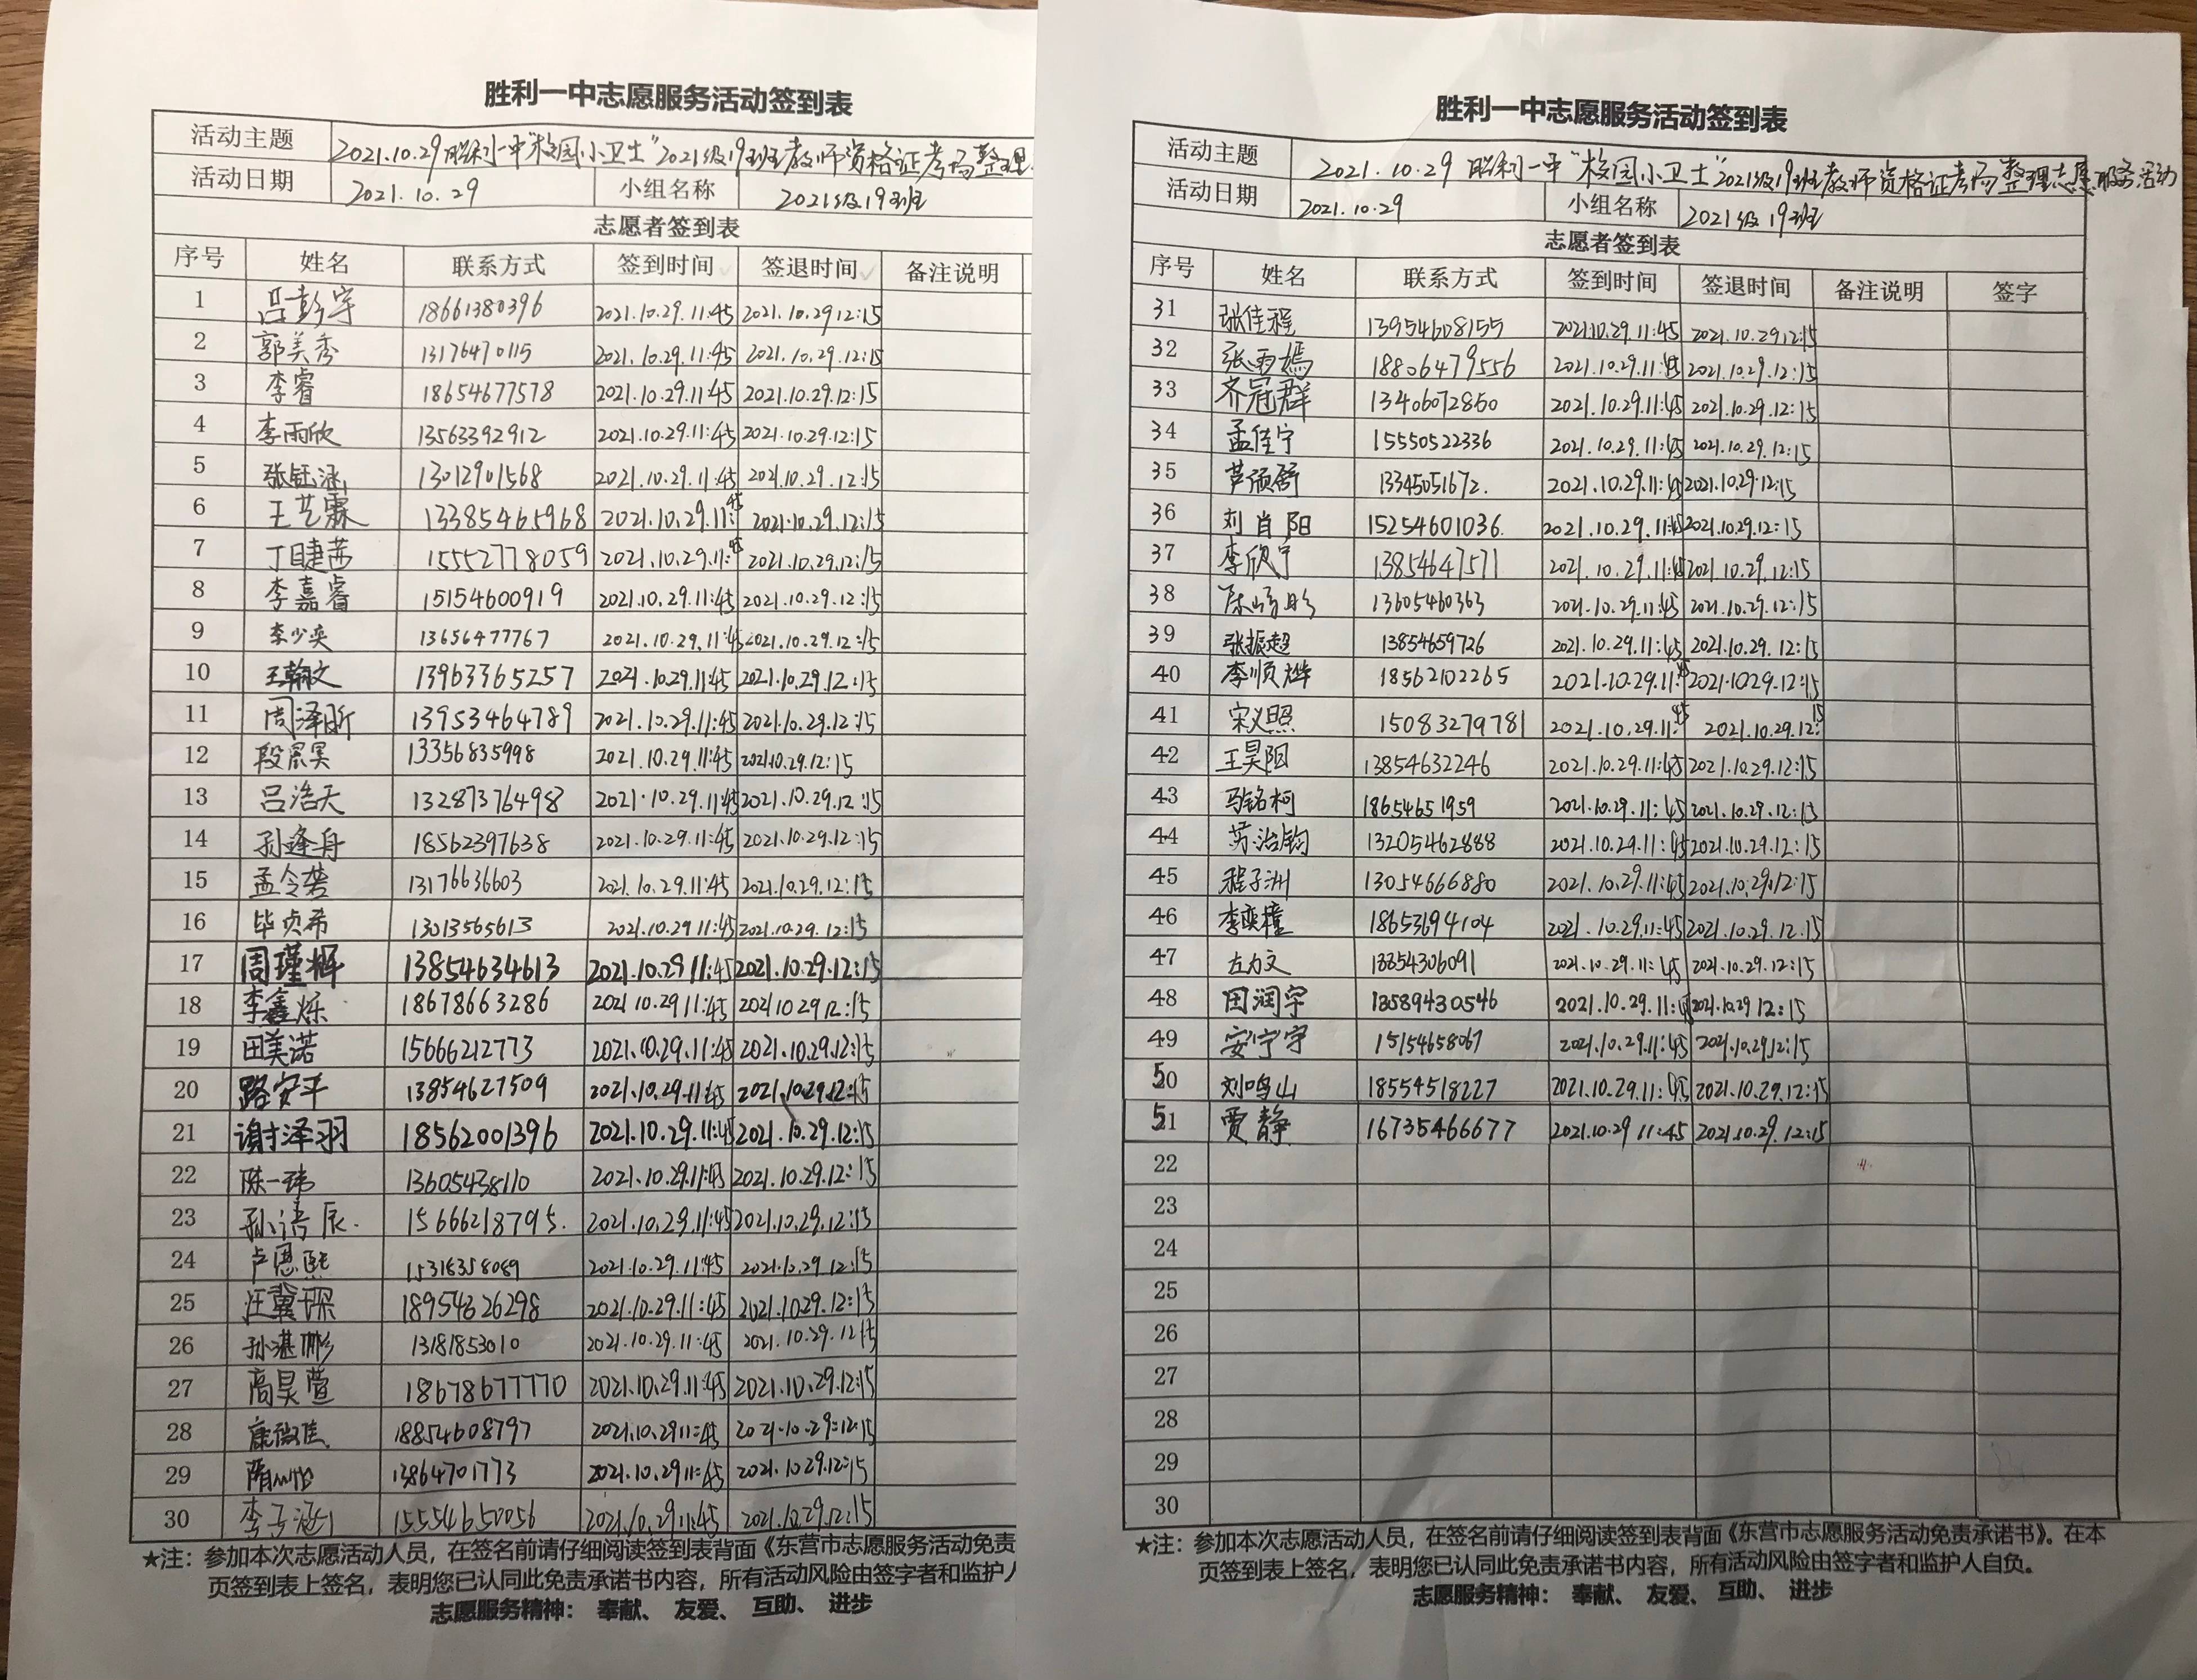 胜利一中志愿服务活动签到表
活动主题 2021.10.29胜利一中"校园小卫士"2021级19班教师资格证考场整理
活动日期 2021.10.29 小组名称 2021级19班
志愿者签到表
序号 姓名 联系方式 签到时间 签退时间 备注说明
1 吕彭宇 18661380396 2021.10.29.11:45 2021.10.29 12:15
2 郭美秀 13176470115 2021.10.29.11:45 2021.10.29.12:15
3 李睿 18654677578 2021.10.29.11:45 2021.10.29.12:15
4 李雨欣 13563392912 2021.10.29.11:45 2021.10.29.12:15
5 张钰涵 13012901568 2021.10.29.11:45 2021.10.29.12:15
6 王艺霖 13385465968 2021.10.29.11:45 2021.10.29.12:15
7 丁睫茜 15552778059 2021.10.29.11:45 2021.10.29.12:15
8 李嘉睿 15154600919 2021.10.29.11:45 2021.10.29.12:15
9 李少奕 13656477767 2021.10.29.11:45 2021.10.29.12:15
10 王翰文 13963365257 2021.10.29.11:45 2021.10.29.12:15
11 周泽昕 13953464789 2021.10.29.11:45 2021.10.29.12:15
12 段景昊 13356835998 2021.10.29.11:45 2021.10.29.12:15
13 吕浩天 13287376498 2021.10.29.11:45 2021.10.29.12:15
14 孙逢舟 18562397638 2021.10.29.11:45 2021.10.29.12:15
15 孟令 13176636603 2021.10.29.11:45 2021.10.29.12:15
16 毕贞希 13013565613 2021.10.29 11:45 2021.10.29.12:15
17 周瑾辉 13854634613 2021.10.29 11:45 2021.10.29.12:15
18 李鑫烁 18678663286 2021 10.29 11:45 2021 10 29 12:15
19 田美诺 15666212773 2021.10.29.11:45 2021.10.29.12:15
20 路安平 13854627509 2021.10.29.11:45 2021.10.29.12:15
21 谢泽羽 18562001396 2021.10.29.11:45 2021.10.29.12:15
22 陈一玮 13605438110 2021.10.29.11:45 2021.10.29.12:15
23 孙语辰. 15666218795. 2021.10.29.11:45 2021.10.29.12:15
24 卢恩熙 15318358089 2021.10.29.11:45 2021.10.29 12:15
25 汪冀琛 18954626298 2021.10.29.11:45 2021.10.29.12:15
26 孙湛彬 13181853010 2021.10.29.11:45 2021.10.29.12:15
27 高昊萱 18678677770 2021.10.29.11:45 2021.10.29.12:15
28 康微佳 18854608797 2021.10.29 11:45 2021.10.29.12:15
29 隋 13864701773 2021.10.29 11:45 2021.10 29.12:15
30 李子涵 15554650056 2021.10.29 11:45 2021.10.29.12:15
★注：参加本次志愿活动人员，在签名前请仔细阅读签到表背面《东营市志愿服务活动免责
页签到表上签名，表明您已认同此免责承诺书内容，所有活动风险由签字者和监护人
志愿服务精神： 奉献、 友爱、 互助、 进步
胜利一中志愿服务活动签到表
活动主题 2021.10.29 胜利一中"校园小卫士"2021级19班教师资格证考场整理志愿服务活动
活动日期 2021.10.29 小组名称 2021级19班
志愿者签到表
序号 姓名 联系方式 签到时间 签退时间 备注说明 签字
31 张佳程 13954608155 2021.10.29.11:45 2021.10.29.12:15
32 张雨嫣 18806479556 2021.10.29.11:45 2021.10.29.12:15
33 齐冠群 13406072860 2021.10.29.11:45 2021.10.29.12:15
34 孟佳宁 15550522336 2021.10.29.11:45 2021.10.29.12:15
35 芦颀舒 13345051672. 2021.10.29.11:45 2021.10.29.12:15
36 刘肖阳 15254601036. 2021.10.29.11:45 2021.10.29.12:15
37 李欣宁 13854647571 2021.10.29.11:45 2021.10.29.12:15
38 13605460363 2021.10.29.11:45 2021.10.29.12:15
39 张振超 13854659726 2021.10.29.11:45 2021.10.29.12:15
40 李顺烨 18562102265 2021.10.29.11:45 2021.10.29.12:15
41 宋义照 15083279781 2021.10.29.11:45 2021.10.29.12:15
42 王昊阳 13854632246 2021.10.29.11:45 2021.10.29.12:15
43 马铭柯 18654651959 2021.10.29.11:45 2021.10.29.12:15
44 劳治钧 13205462888 2021.10.29.11:45 2021.10.29.12:15
45 程子洲 13054666880 2021.10.29.11:45 2021.10.29.12:15
46 李奕橦 18653194104 2021.10.29.11:45 2021.10.29.12:15
47 左力文 13854306091 2021.10.29.11:45 2021.10.29.12:15
48 田润宇 13589430546 2021.10.29.11:45 2021.10.29 12:15
49 安宁宇 15154658067 2021.10.29.11:45 2021.10.29.12:15
50 刘鸣山 18554518227 2021.10.29.11:45 2021.10.29.12:15
51 贾静 16735466677 2021.10.29 11:45 2021.10.29.12:15
22
23
24
25
26
27
28
29
30
★注：参加本次志愿活动人员，在签名前请仔细阅读签到表背面《东营市志愿服务活动免责承诺书》。在本
页签到表上签名，表明您已认同此免责承诺书内容，所有活动风险由签字者和监护人自负。
志愿服务精神： 奉献、 友爱、 互助、 进步